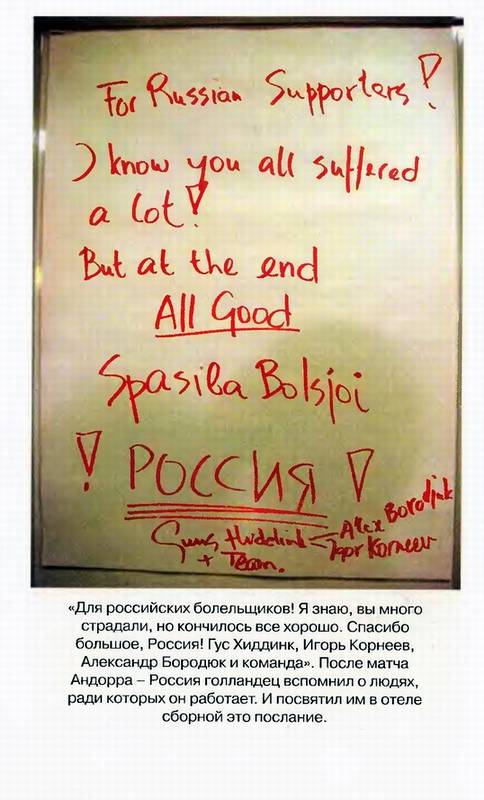 For Russian Supporters!
I know you all suffered
a lot!
But at the end
All Good
Spasiba Bolsjoi
! РОССИЯ !
Guus Hiddink Alex Borodjuk
+ Team. Igor Korneev
«Для российских болельщиков! Я знаю, вы много
страдали, но кончилось все хорошо. Спасибо
большое, Россия! Гус Хиддинк, Игорь Корнеев,
Александр Бородюк и команда». После матча
Андорра – Россия голландец вспомнил о людях,
ради которых он работает. И посвятил им в отеле
сборной это послание.